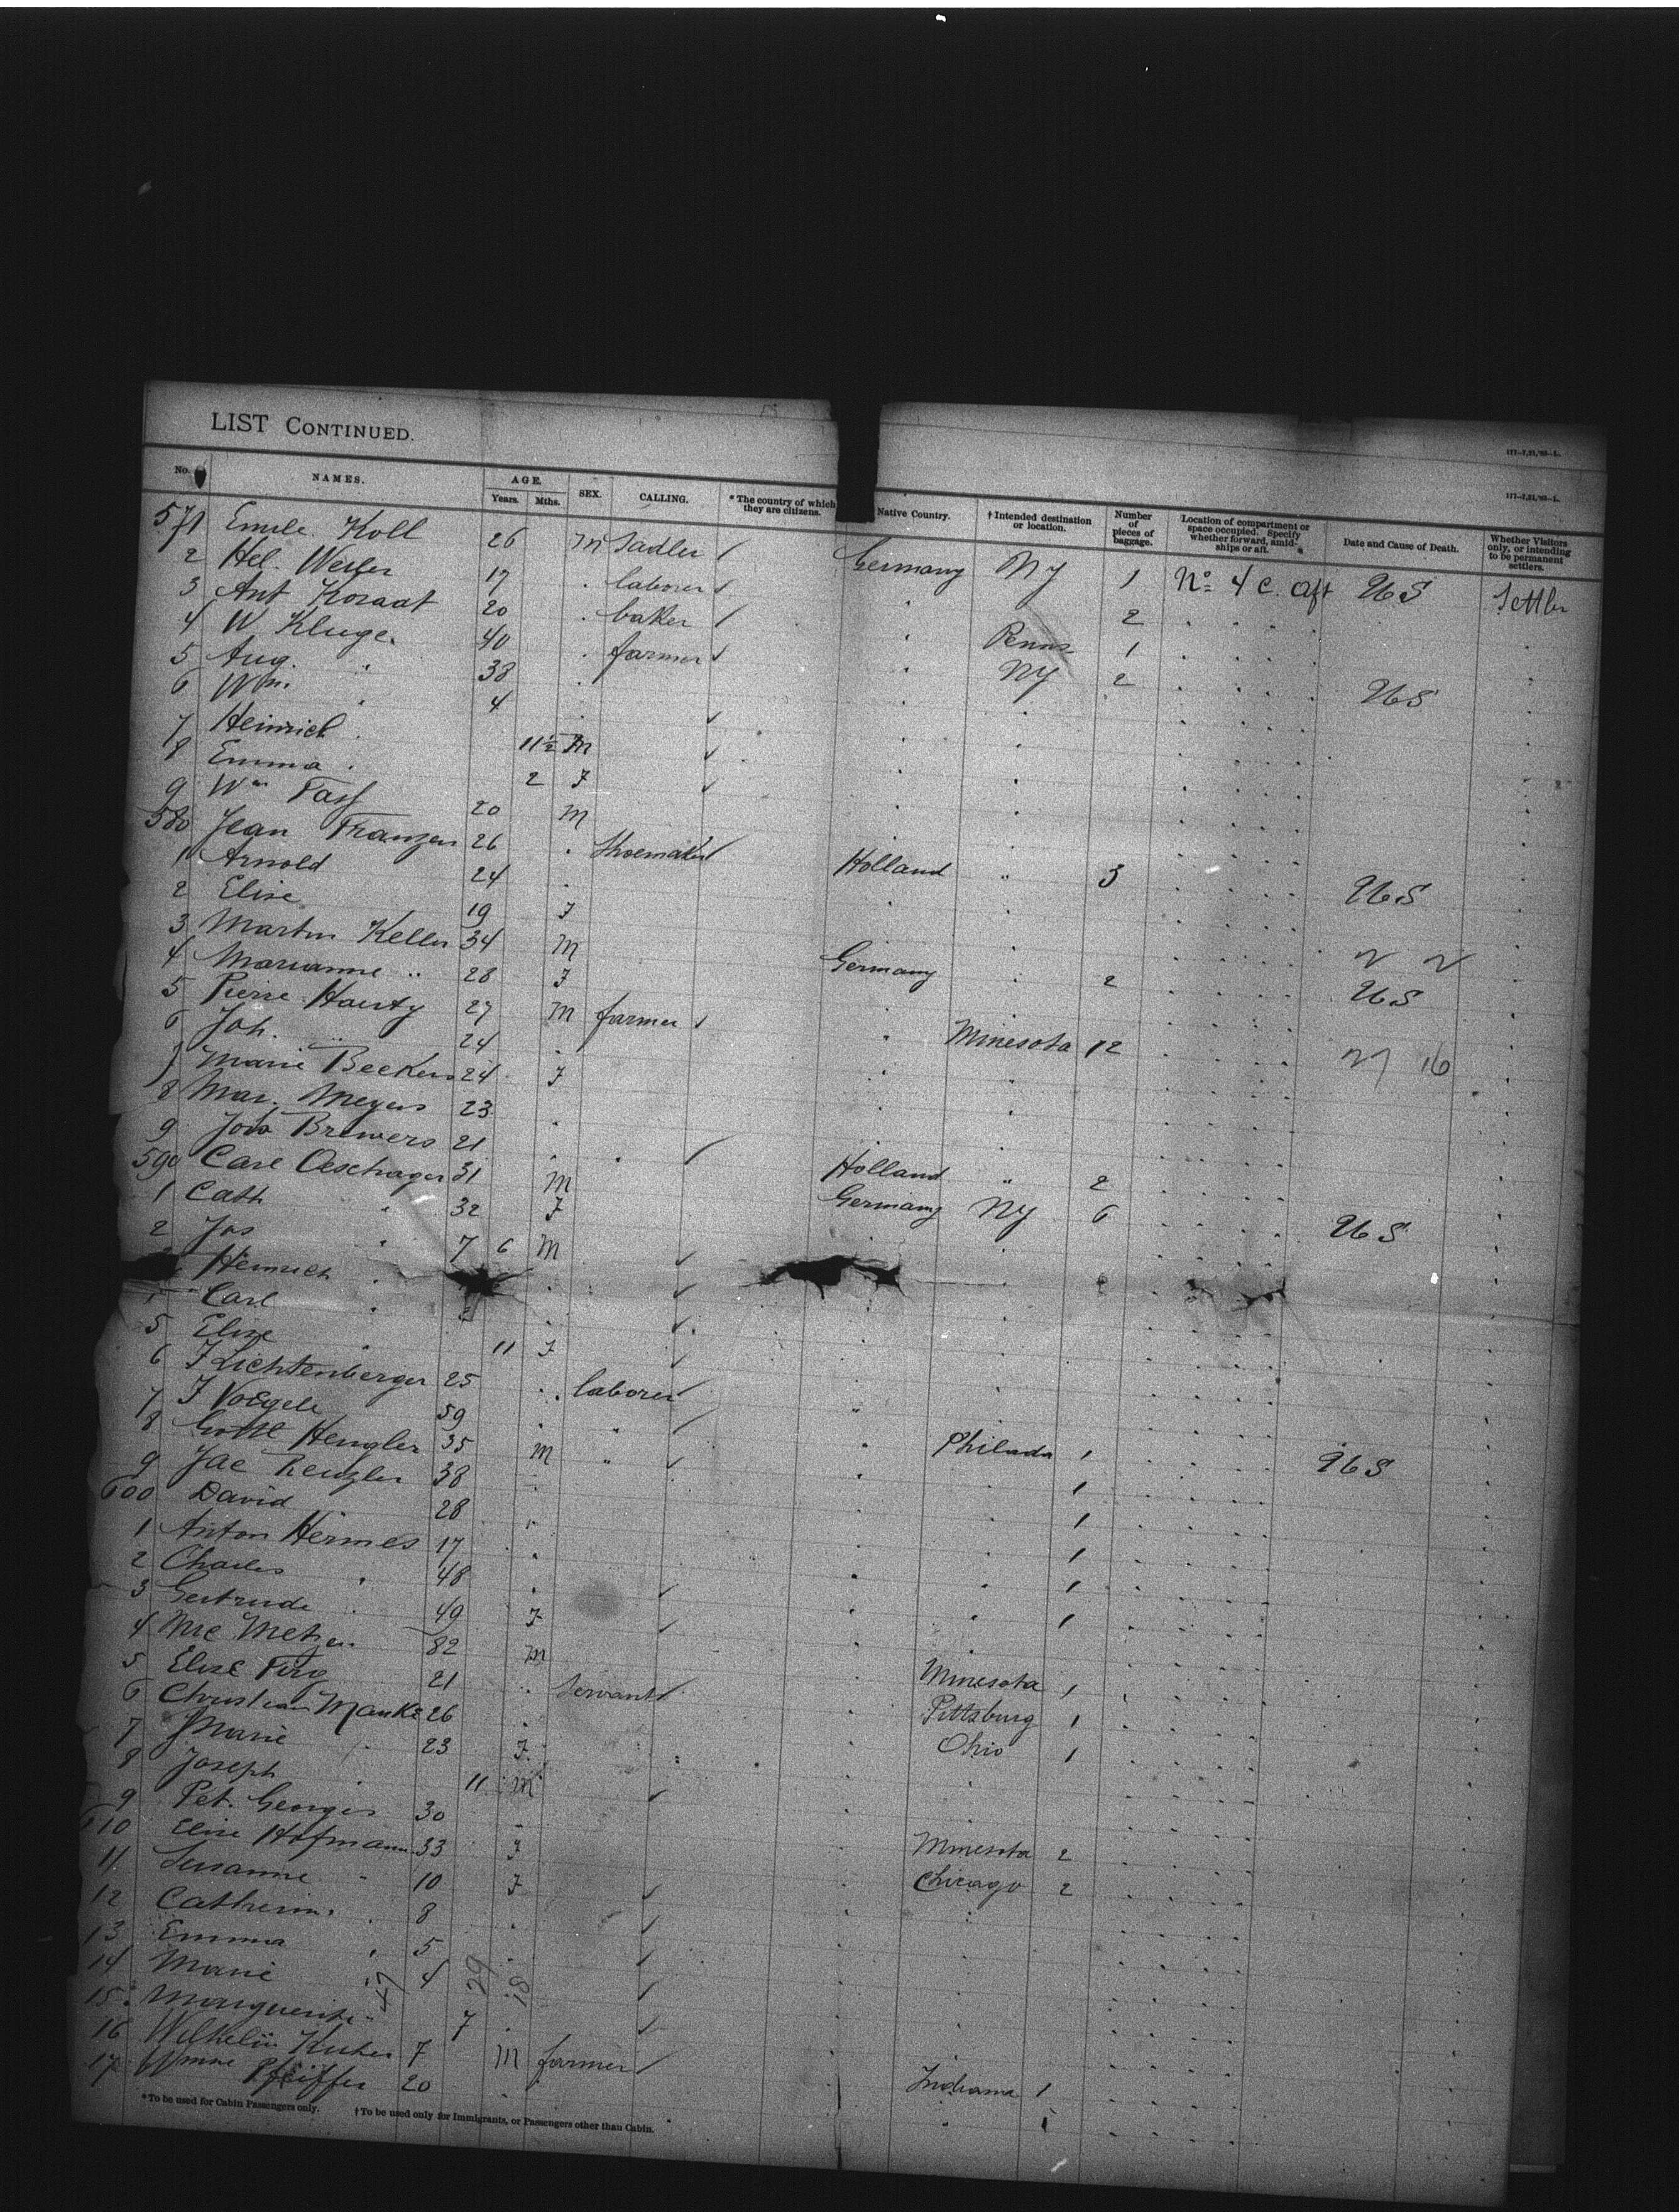 LIST CONTINUED.
177—7,21,'93—L.
177—7,21,'93—L.
No. NAMES. AGE. Years. Mths. SEX. CALLING. * The country of which they are citizens. Native Country. † Intended destination or location. Number of pieces of baggage. Location of compartment or space occupied. Specify whether forward, amidships or aft. Date and Cause of Death. Whether Visitors only, or intending to be permanent settlers.
571 Emile Koll 26 M Sadler Germany NY 1 No 4 C. Aft US Settler
2 Hel. Weiler 17 . laborer . 2
3 Ant 20 . baker . Penns 1
4 W Kluge 40 . farmer . NY 2 US
5 Aug. " 38 .
6 Wm. " 4 .
7 Heinrich " 11½ M
8 Emma " 2 F
9 Wm 20 M
580 Jean Franzen 26 . Shoemaker Holland " 3 US
1 Arnold 24 .
2 Elise 19 F
3 Martin Keller 34 M Germany . 2 US
4 Marianne " 28 F
5 Pierre 27 M farmer . Minesota 12 27 16
6 Joh. " 24 .
7 Marie Beckers 24 F
8 Mar. Meyers 23 .
9 Brewers 21 . . Holland " 2
590 Carl Oeschager 31 M Germany NY 6 US
1 Cath " 32 F
2 Jos " 7 6 M
Heinrich "
Carl "
5 Elise 11 F
6 F Lichtenberger 25 . laborer
7 F Voegele 59 . "
8 Gottl Hengler 35 M " . Philada 1 US
9 Jac 38 . 1
600 David 28 . 1
1 Anton Hermes 17 . 1
2 Charles " 48 . 1
3 Gertrude " 49 F 1
4 Nic Metzen 82 M Minesota 1
5 Elise 21 . Servant Pittsburg 1
6 Christian Manke 26 . Ohio 1
7 Marie " 23 F
8 Joseph " 11 M
9 Pet. Georges 30 Minesota 2
610 Elise Hofmann 33 F Chicago 2
11 Susanne " 10 F
12 Catherine " 8 .
13 Emma " 5 .
14 Marie 4 47 29 18
15 Marguerite " 7 .
16 7 M farmer Indiana 1
17 Pfeiffer 20 . " 1
*To be used for Cabin Passengers only. †To be used only for Immigrants, or Passengers other than Cabin.